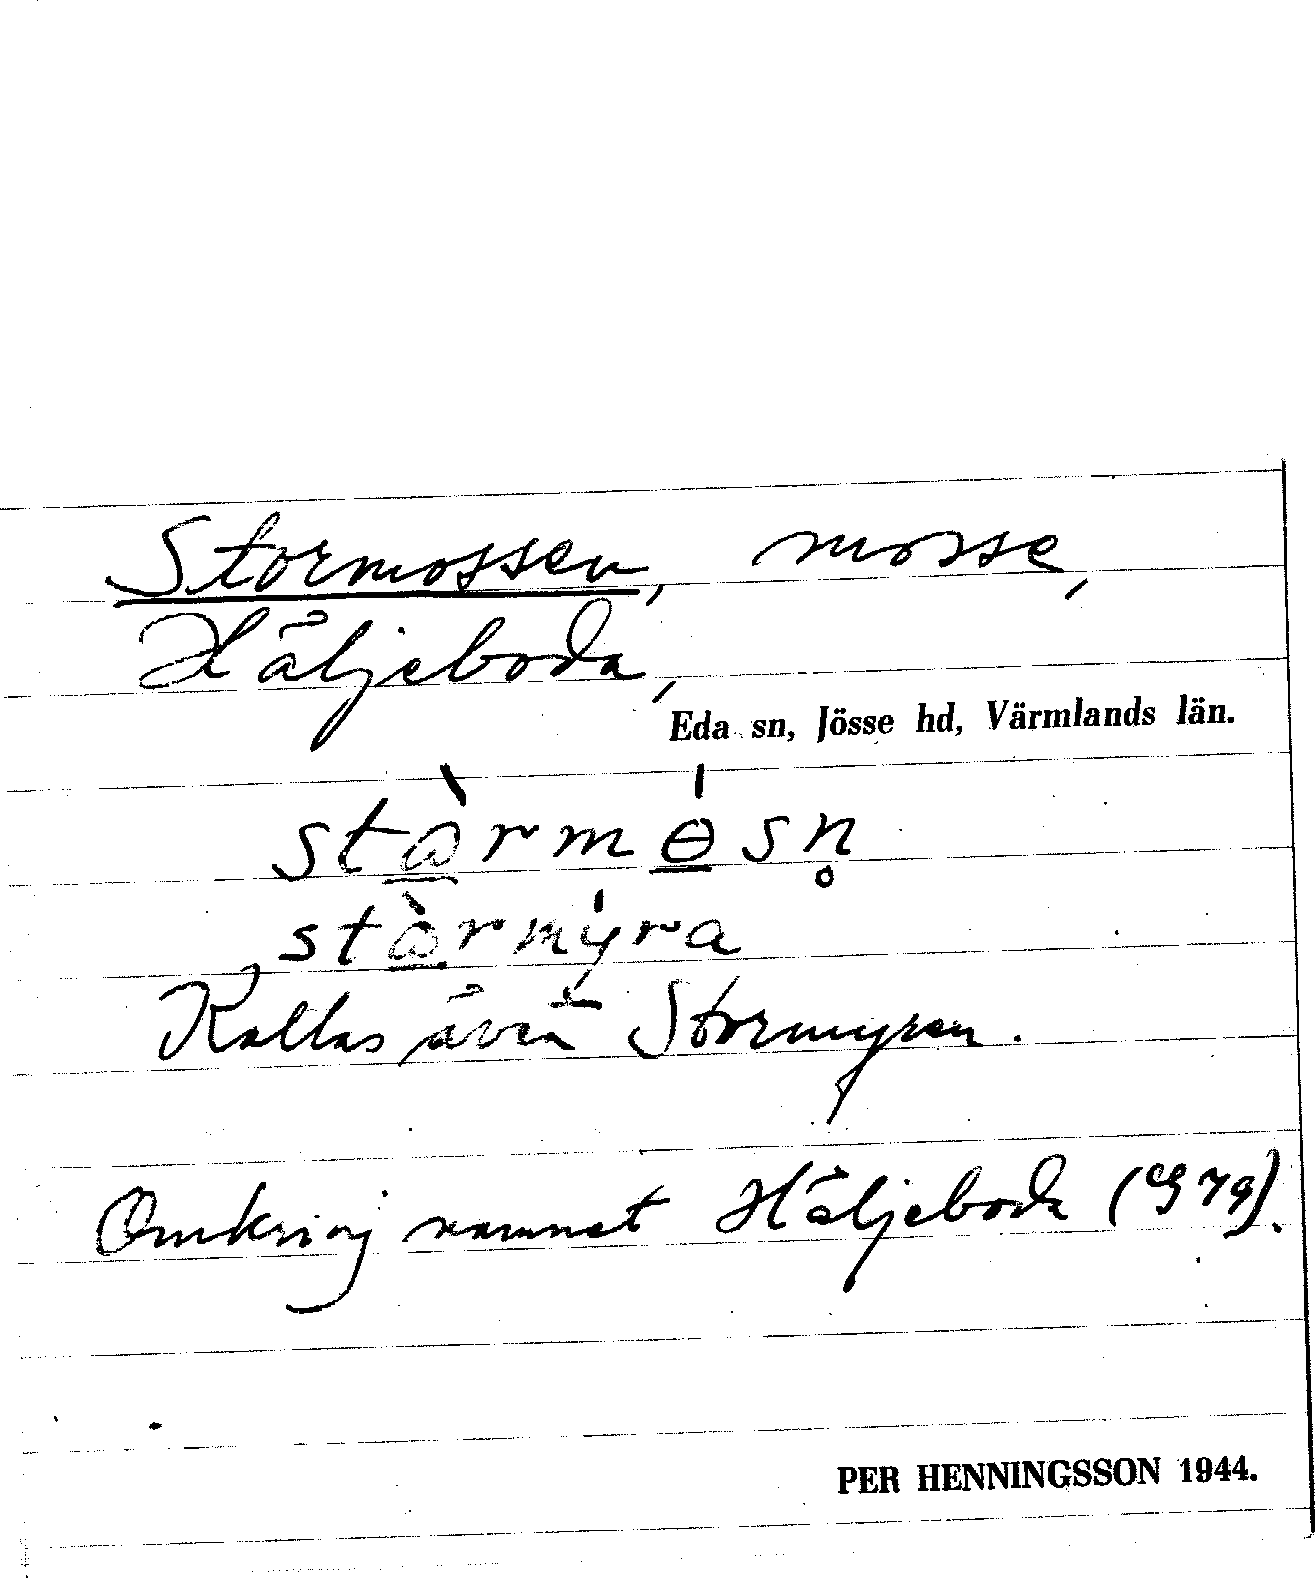 Stormossen, mosse,
Häljeboda,
Eda sn, Jösse hd, Värmlands län.
stɷ̀rmɵ́sn̥
stɷ̀rmýra
Kallas även Stormyren.
Omkring namnet Häljeboda (G79).
PER HENNINGSSON 1944.